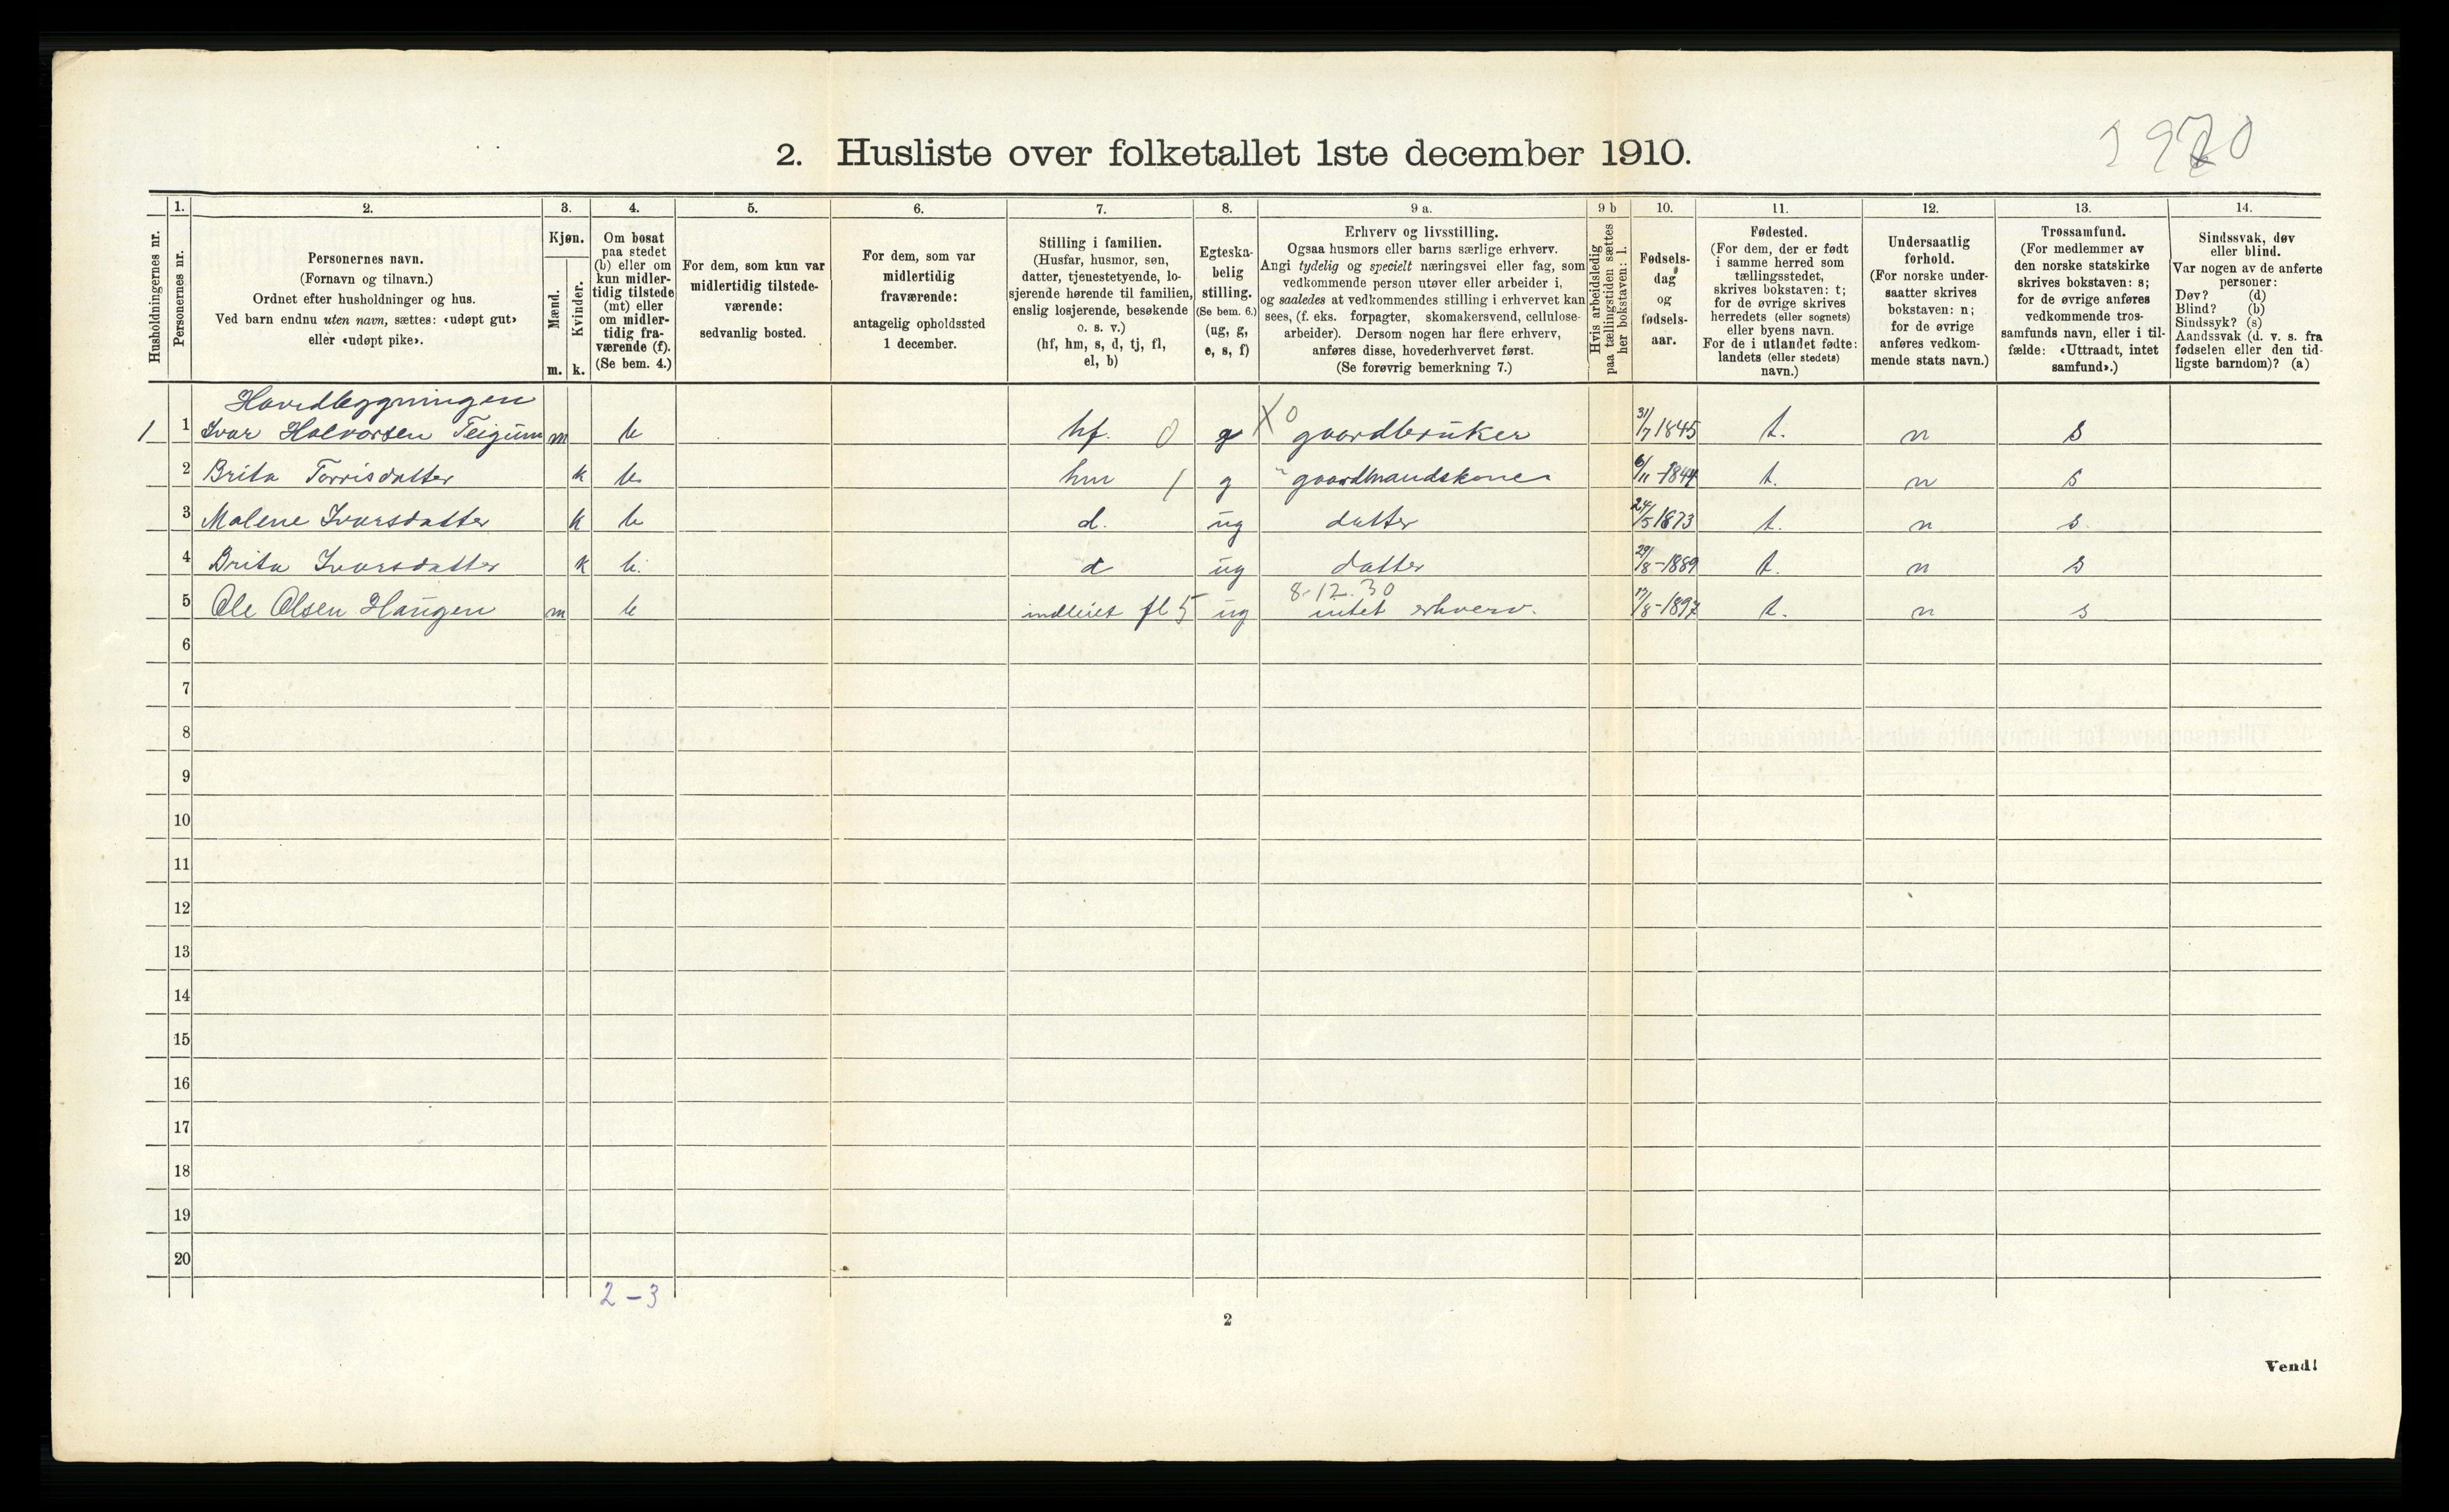 2. Husliste over folketallet 1ste december 1910.
1. 2. 3. 4. 5. 6. 7. 8. 9 a. 9 b 10. 11. 12. 13. 14.
Husholdningernes nr.
Personernes nr.
Personernes navn.
(Fornavn og tilnavn.)
Ordnet efter husholdninger og hus.
Ved barn endnu uten navn, sættes: «udøpt gut»
eller «udøpt pike».
Kjøn.
Mænd.
Kvinder.
m. k.
Om bosat
paa stedet
(b) eller om
kun midler-
tidig tilstede
(mt) eller
om midler-
tidig fra-
værende (f).
(Se bem. 4.)
For dem, som kun var
midlertidig tilstede-
værende:
sedvanlig bosted.
For dem, som var
midlertidig
fraværende:
antagelig opholdssted
1 december.
Stilling i familien.
(Husfar, husmor, søn,
datter, tjenestetyende, lo-
sjerende hørende til familien,
enslig losjerende, besøkende
o. s. v.)
(hf, hm, s, d, tj, fl,
el, b)
Egteska-
belig
stilling.
(Se bem. 6.)
(ug, g,
e, s, f)
Erhverv og livsstilling.
Ogsaa husmors eller barns særlige erhverv.
Angi tydelig og specielt næringsvei eller fag, som
vedkommende person utøver eller arbeider i,
og saaledes at vedkommendes stilling i erhvervet kan
sees, (f. eks. forpagter, skomakersvend, cellulose-
arbeider). Dersom nogen har flere erhverv,
anføres disse, hovederhvervet først.
(Se forøvrig bemerkning 7.)
Hvis arbeidsledig
paa tællingstiden sættes
her bokstaven: l.
Fødsels-
dag
og
fødsels-
aar.
Fødested.
(For dem, der er født
i samme herred som
tællingsstedet,
skrives bokstaven: t;
for de øvrige skrives
herredets (eller sognets)
eller byens navn.
For de i utlandet fødte:
landets (eller stedets)
navn.)
Undersaatlig
forhold.
(For norske under-
saatter skrives
bokstaven: n;
for de øvrige
anføres vedkom-
mende stats navn.)
Trossamfund.
(For medlemmer av
den norske statskirke
skrives bokstaven: s;
for de øvrige anføres
vedkommende tros-
samfunds navn, eller i til-
fælde: «Uttraadt, intet
samfund».)
Sindssvak, døv
eller blind.
Var nogen av de anførte
personer:
Døv? (d)
Blind? (b)
Sindssyk? (s)
Aandssvak (d. v. s. fra
fødselen eller den tid-
ligste barndom)? (a)
Hovedbygningen
1 1 Ivar Halvorsen Teigum m b hf. 0 g X 0 gaardbruker 31/7 1845 t. n s
2 Brita Torrisdatter k b hm 1 g gaardmandskone 6/11-1844 t. n s
3 Malene Ivarsdatter k b d. ug datter 24/5 1873 t. n s.
4 Brita Ivarsdatter k b. d ug datter 29/8-1889 t. n s
8-12.30
5 Ole Olsen Haugen m b indleiet fl 5 ug intet erhverv. 17/8-1897 t. n s
6
7
8
9
10
11
12
13
14
15
16
17
18
19
20
2-3
2
Vend!